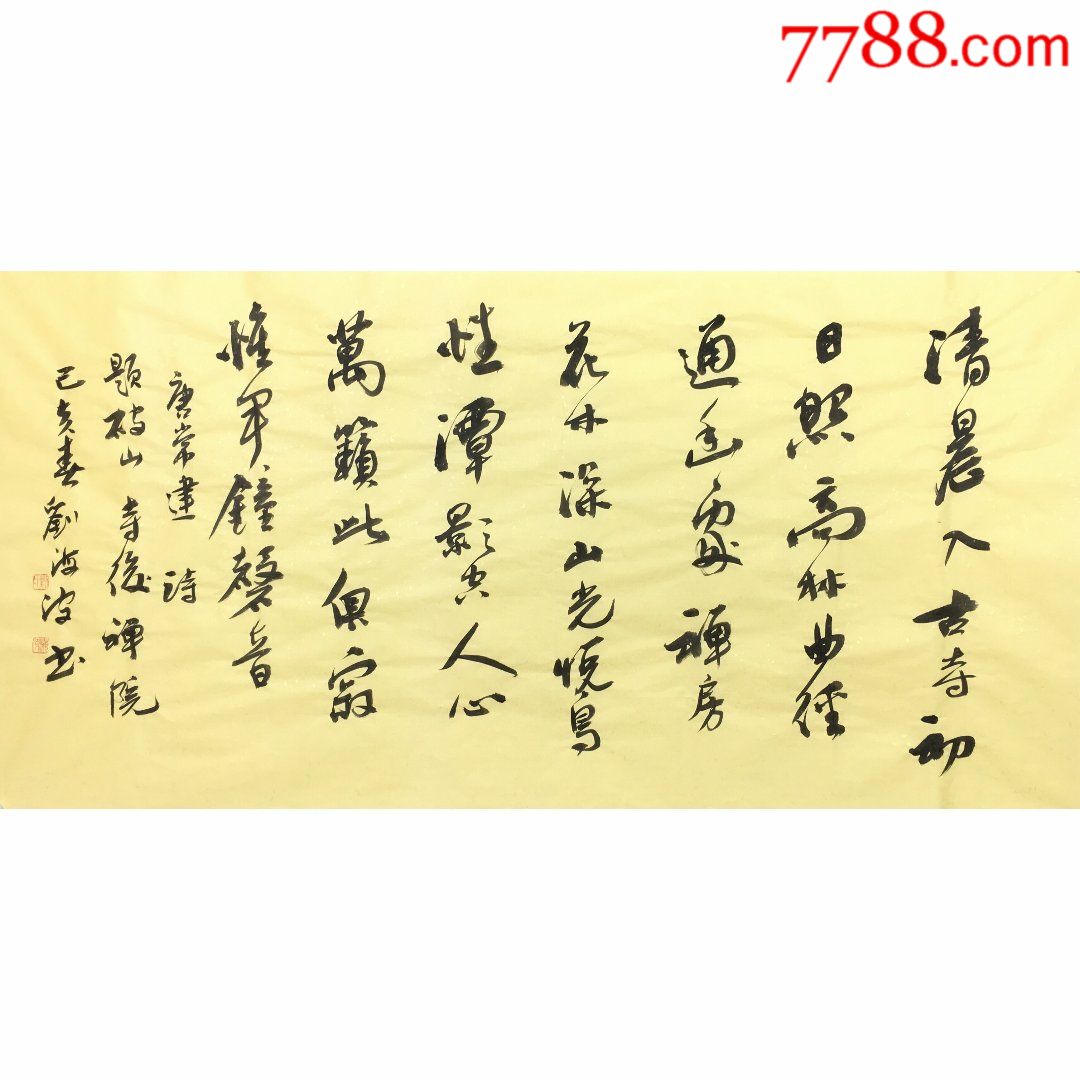 7788.com
清晨入古寺初
日照高林曲徑
通幽處禪房
花木深山光悦鳥
性潭影空人心
萬籟此俱寂
惟聞鐘磬音
唐常建詩
題破山寺後禪院
己亥春劉海波書